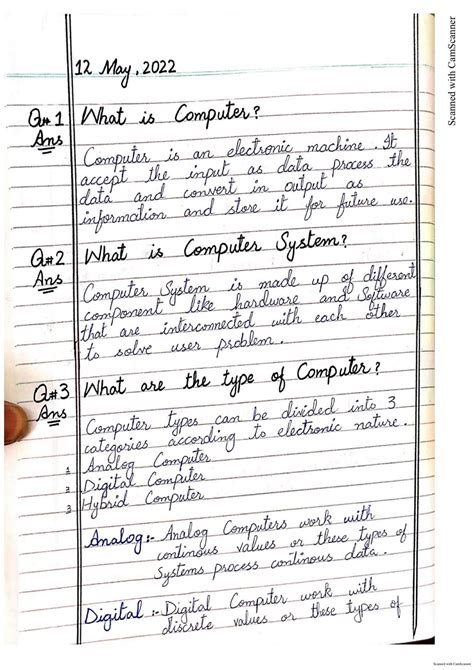 12 May, 2022
Q#1 What is Computer?
Ans Computer is an electronic machine. It
accept the input as data process the
data and convert in output as
information and store it for future use.
Q#2 What is Computer System?
Ans Computer System is made up of different
component like hardware and Software
that are interconnected with each other
to solve user problem.
Q#3 What are the type of Computer?
Ans Computer types can be divided into 3
categories according to electronic nature.
1 Analog Computer
2 Digital Computer
3 Hybrid Computer
Analog:- Analog Computers work with
continous values or these types of
Systems process continous data.
Digital:- Digital Computer work with
discrete values or these types of
Scanned with CamScanner
Scanned with CamScanner